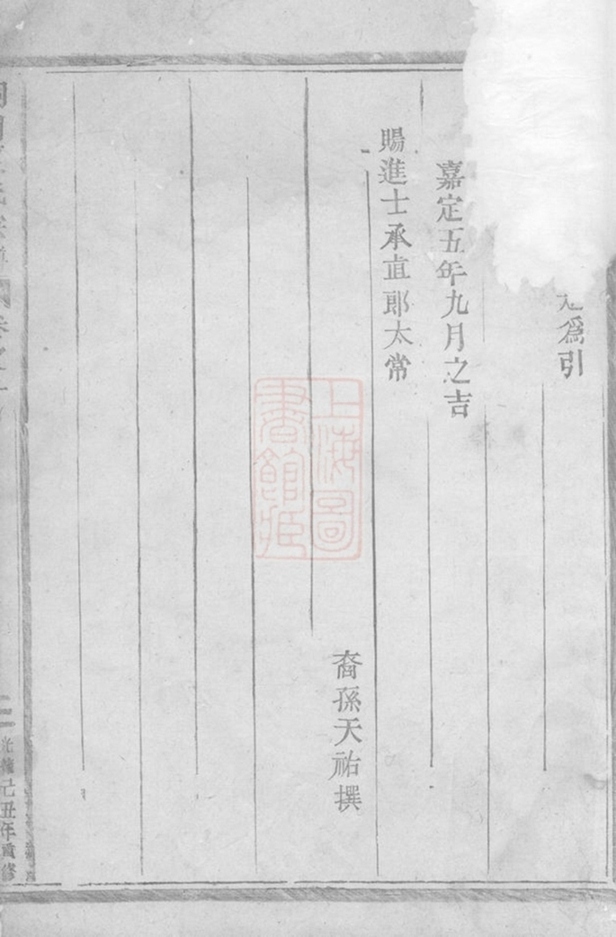 為引
嘉定五年九月之吉
賜進士承直郎太常
裔孫天祐撰
氏宗譜 卷之一
二
光緒己丑年重修